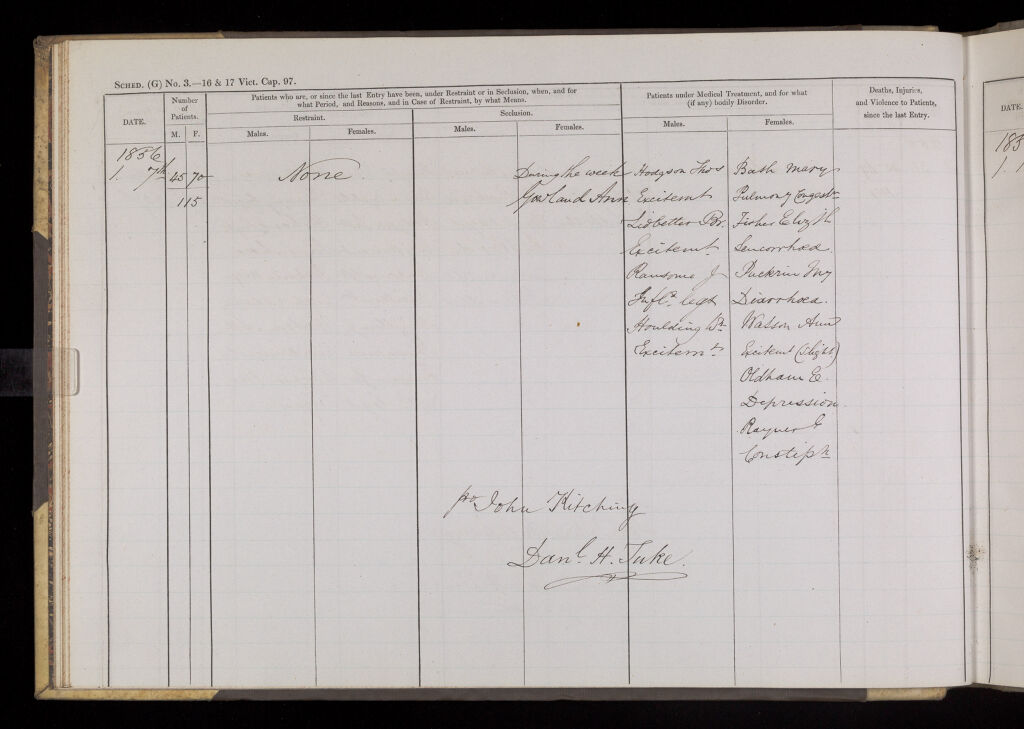 SCHED. (G) No. 3.—16 & 17 Vict. Cap. 97.
DATE.
Number of Patients.
M. F.
Patients who are, or since the last Entry have been, under Restraint or in Seclusion, when, and for
what Period, and Reasons, and in Case of Restraint, by what Means.
Restraint.
Males. Females.
Seclusion.
Males. Females.
Patients under Medical Treatment, and for what
(if any) bodily Disorder.
Males. Females.
Deaths, Injuries,
and Violence to Patients,
since the last Entry.
1856
1. 7th 45 70 None During the week Hodgson Thos Bath Mary
115 Gowland Ann Excitemt Pulmony Congestn
Lidbetter Br. Fisher Elizth
Excitemt Leucorrhœa
Ransome J Puckrin My
Infln legs Diarrhœa.
Houlding Wm Watson Ann
Excitemt Excitemt (slight)
Oldham E.
Depression
Rayner E
Constipn
pro John Kitching
Danl. H. Tuke.
DATE.
185
1.